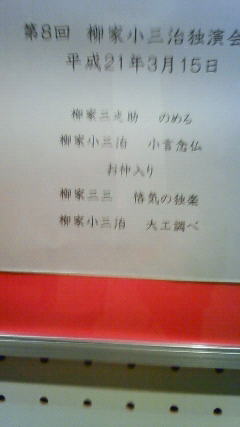 第8回 柳家小三治独演会
平成21年3月15日
柳家三之助 のめる
柳家小三治 小言念仏
お仲入り
柳家三三 悋気の独楽
柳家小三治 大工調べ